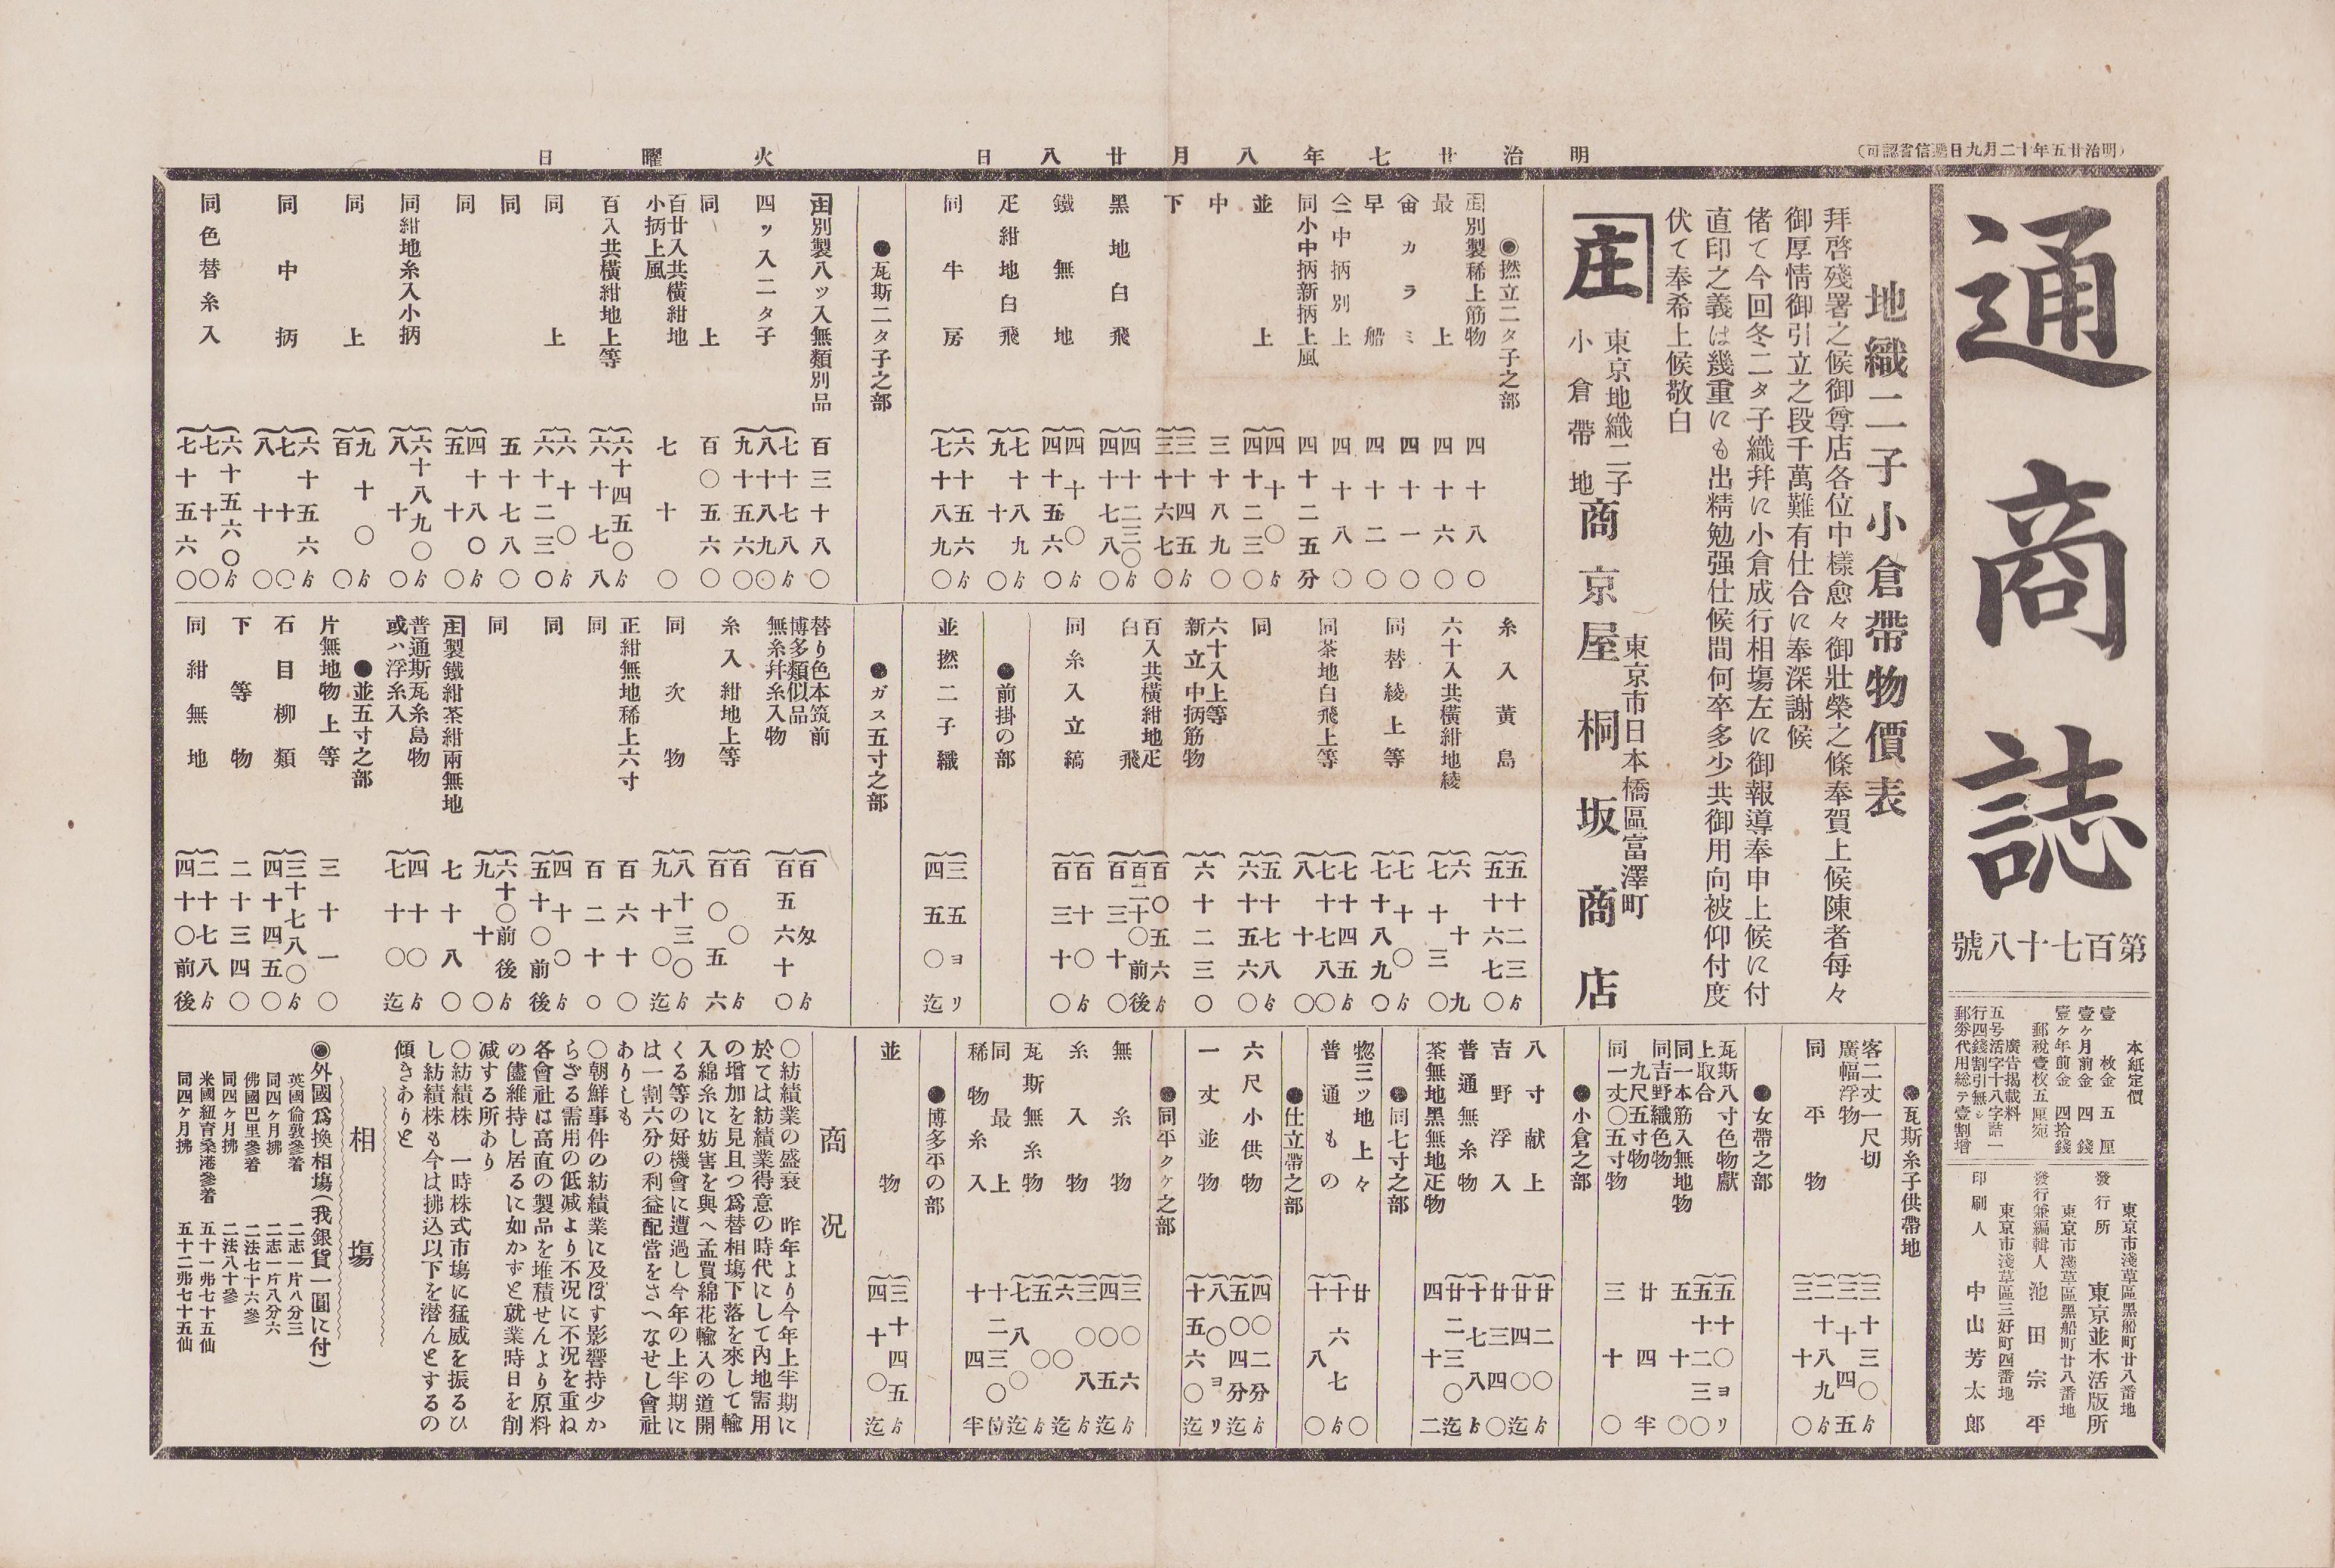 (明治廿五年十二月九日遞信省認可)
明治廿七年八月廿八日
火曜日
通商誌
第百七十八號
本紙定價
壹枚金五厘
壹ヶ月前金四錢
壹ヶ年前金四拾錢
郵稅壹枚五厘宛
廣告揭載料
五号活字十八字詰一
行四錢割引無シ
郵劵代用総テ壹割增
東京市淺草區黑船町廿八番地
發行所 東京並木活版所
東京市淺草區黑船町廿八番地
發行兼編輯人 池田宗平
東京市淺草區三好町四番地
印刷人 中山芳太郎
地織二子小倉帶物價表
拜啓殘署之候御尊店各位中樣愈々御壯榮之條奉賀上候陳者每々
御厚情御引立之段千萬難有仕合に奉深謝候
偖て今回冬二タ子織幷に小倉成行相塲左に御報導奉申上候に付
直印之義は幾重にも出精勉强仕候間何卒多少共御用向被仰付度
伏て奉希上候敬白
庄
東京地織二子
小倉帶地
商
東京市日本橋區富澤町
京屋 桐坂商店
◉撚立二タ子之部
別製稀上筋物 四十八〇
最上 四十六〇
カラミ 四十一〇
早船 四十二〇
中柄別上 四十八〇
同小中柄新柄上風 四十二五分
並上 四十〇ゟ 四十二三〇
中 三十八九〇
下 三十四五ゟ 三十六七〇
黑地白飛 四十二三〇ゟ 四十七八〇
鐵無地 四十〇ゟ 四十五六〇
疋紺地白飛 七十八九ゟ 九十〇
同牛房 六十五六ゟ 七十八九〇
●瓦斯二タ子之部
庄別製八ッ入無類別品 百三十八〇
四ッ入二タ子 七十七八ゟ 八十八九〇 九十五六〇
同上 百〇五六〇
百廿入共橫紺地
小柄上風 七十〇
百入共橫紺地上等 六十四五〇ゟ 六十七八
同上 六十〇ゟ 六十二三〇
同 五十七八〇
同 四十八〇ゟ 五十〇
同紺地糸入小柄 六十八九〇ゟ 八十〇
同上 九十〇ゟ 百〇
同中柄 六十五六ゟ 七十〇 八十〇
同色替糸入 六十五六〇ゟ 七十〇 七十五六〇
糸入黃島 五十二三ゟ 五十六七〇
六十入共橫紺地綾 六十九 七十三〇
同替綾上等 七十〇ゟ 七十八九〇
同茶地白飛上等 七十四五ゟ 七十七八〇 八十〇
同 五十七八ゟ 六十五六〇
六十入上等
新立中柄筋物 六十二三〇
百入共橫紺地疋
白飛 百〇五六ゟ 百二十〇前後 百三十〇
同糸入立縞 百十〇ゟ 百三十〇
●前掛の部
並撚二子織 三五ヨリ 四五〇迄
●ガス五寸之部
替り色本筑前
博多類似品
無糸幷糸入物 百匁ゟ 百五六十〇
糸入紺地上等 百〇ゟ 百〇五六
同次物 八十三〇ゟ 九十〇迄
正紺無地稀上六寸 百六十〇
同 百二十〇
同 四十〇ゟ 五十〇前後
同 六十〇前後ゟ 九十〇
庄製鐵紺茶紺兩無地 七十八〇
普通斯瓦糸島物
或ハ浮糸入 四十〇ゟ 七十〇迄
●並五寸之部
片無地物上等 三十一〇
石目柳類 三十七八〇ゟ 四十四五〇
下等物 二十三四〇
同紺無地 二十七八ゟ 四十〇前後
●瓦斯糸子供帶地
客二丈一尺切 三十三〇ゟ
廣幅浮物 三十四五
同平物 二十八九ゟ 三十〇
●女帶之部
瓦斯八寸色物獻
上取合 五十〇ヨリ 五十二三〇
同一本筋入無地物 五十〇
同吉野織色物
九尺五寸物 廿四半
同一丈〇五寸物 三十〇
●小倉之部
八寸献上 廿二〇ゟ 廿四〇迄
吉野浮入 廿三四〇
普通無糸物 十七八ゟ 廿二三〇迄
茶無地黑無地疋物 四十二
●同七寸之部
惣三ッ地上々 廿〇
普通もの 十六七ゟ 十八〇
●仕立帶之部
六尺小供物 四〇二分ゟ 五〇四分迄
一丈並物 八〇ヨリ 十五六〇迄
●同平クケ之部
無糸物 三〇六ゟ 四〇五迄
糸入物 三〇八ゟ 六〇迄
瓦斯無糸物 五〇ゟ 七八〇迄
同最上 十二三〇位
稀物糸入 十四半
●博多平の部
並物 三十四五ゟ 四十〇迄
商況
〇紡績業の盛衰 昨年より今年上半期に
於ては紡績業得意の時代にして內地需用
の增加を見且つ爲替相塲下落を來して輸
入綿糸に妨害を與へ孟買綿花輸入の道開
くる等の好機會に遭過し今年の上半期に
は一割六分の利益配當をさへなせし會社
ありしも
〇朝鮮事件の紡績業に及ぼす影響持少か
らざる需用の低減より不況に不況を重ね
各會社は高直の製品を堆積せんより原料
の儘維持し居るに如かずと就業時日を削
減する所あり
〇紡績株 一時株式市塲に猛威を振るひ
し紡績株も今は拂込以下を潜んとするの
傾きありと
相塲
◉外國爲換相塲(我銀貨一圓に付)
英國倫敦參着 二志一片八分三
同四ヶ月拂 二志一片八分六
佛國巴里參着 二法七十六參
同四ヶ月拂 二法八十參
米國紐育桑港參着 五十一弗七十五仙
同四ヶ月拂 五十二弗七十五仙